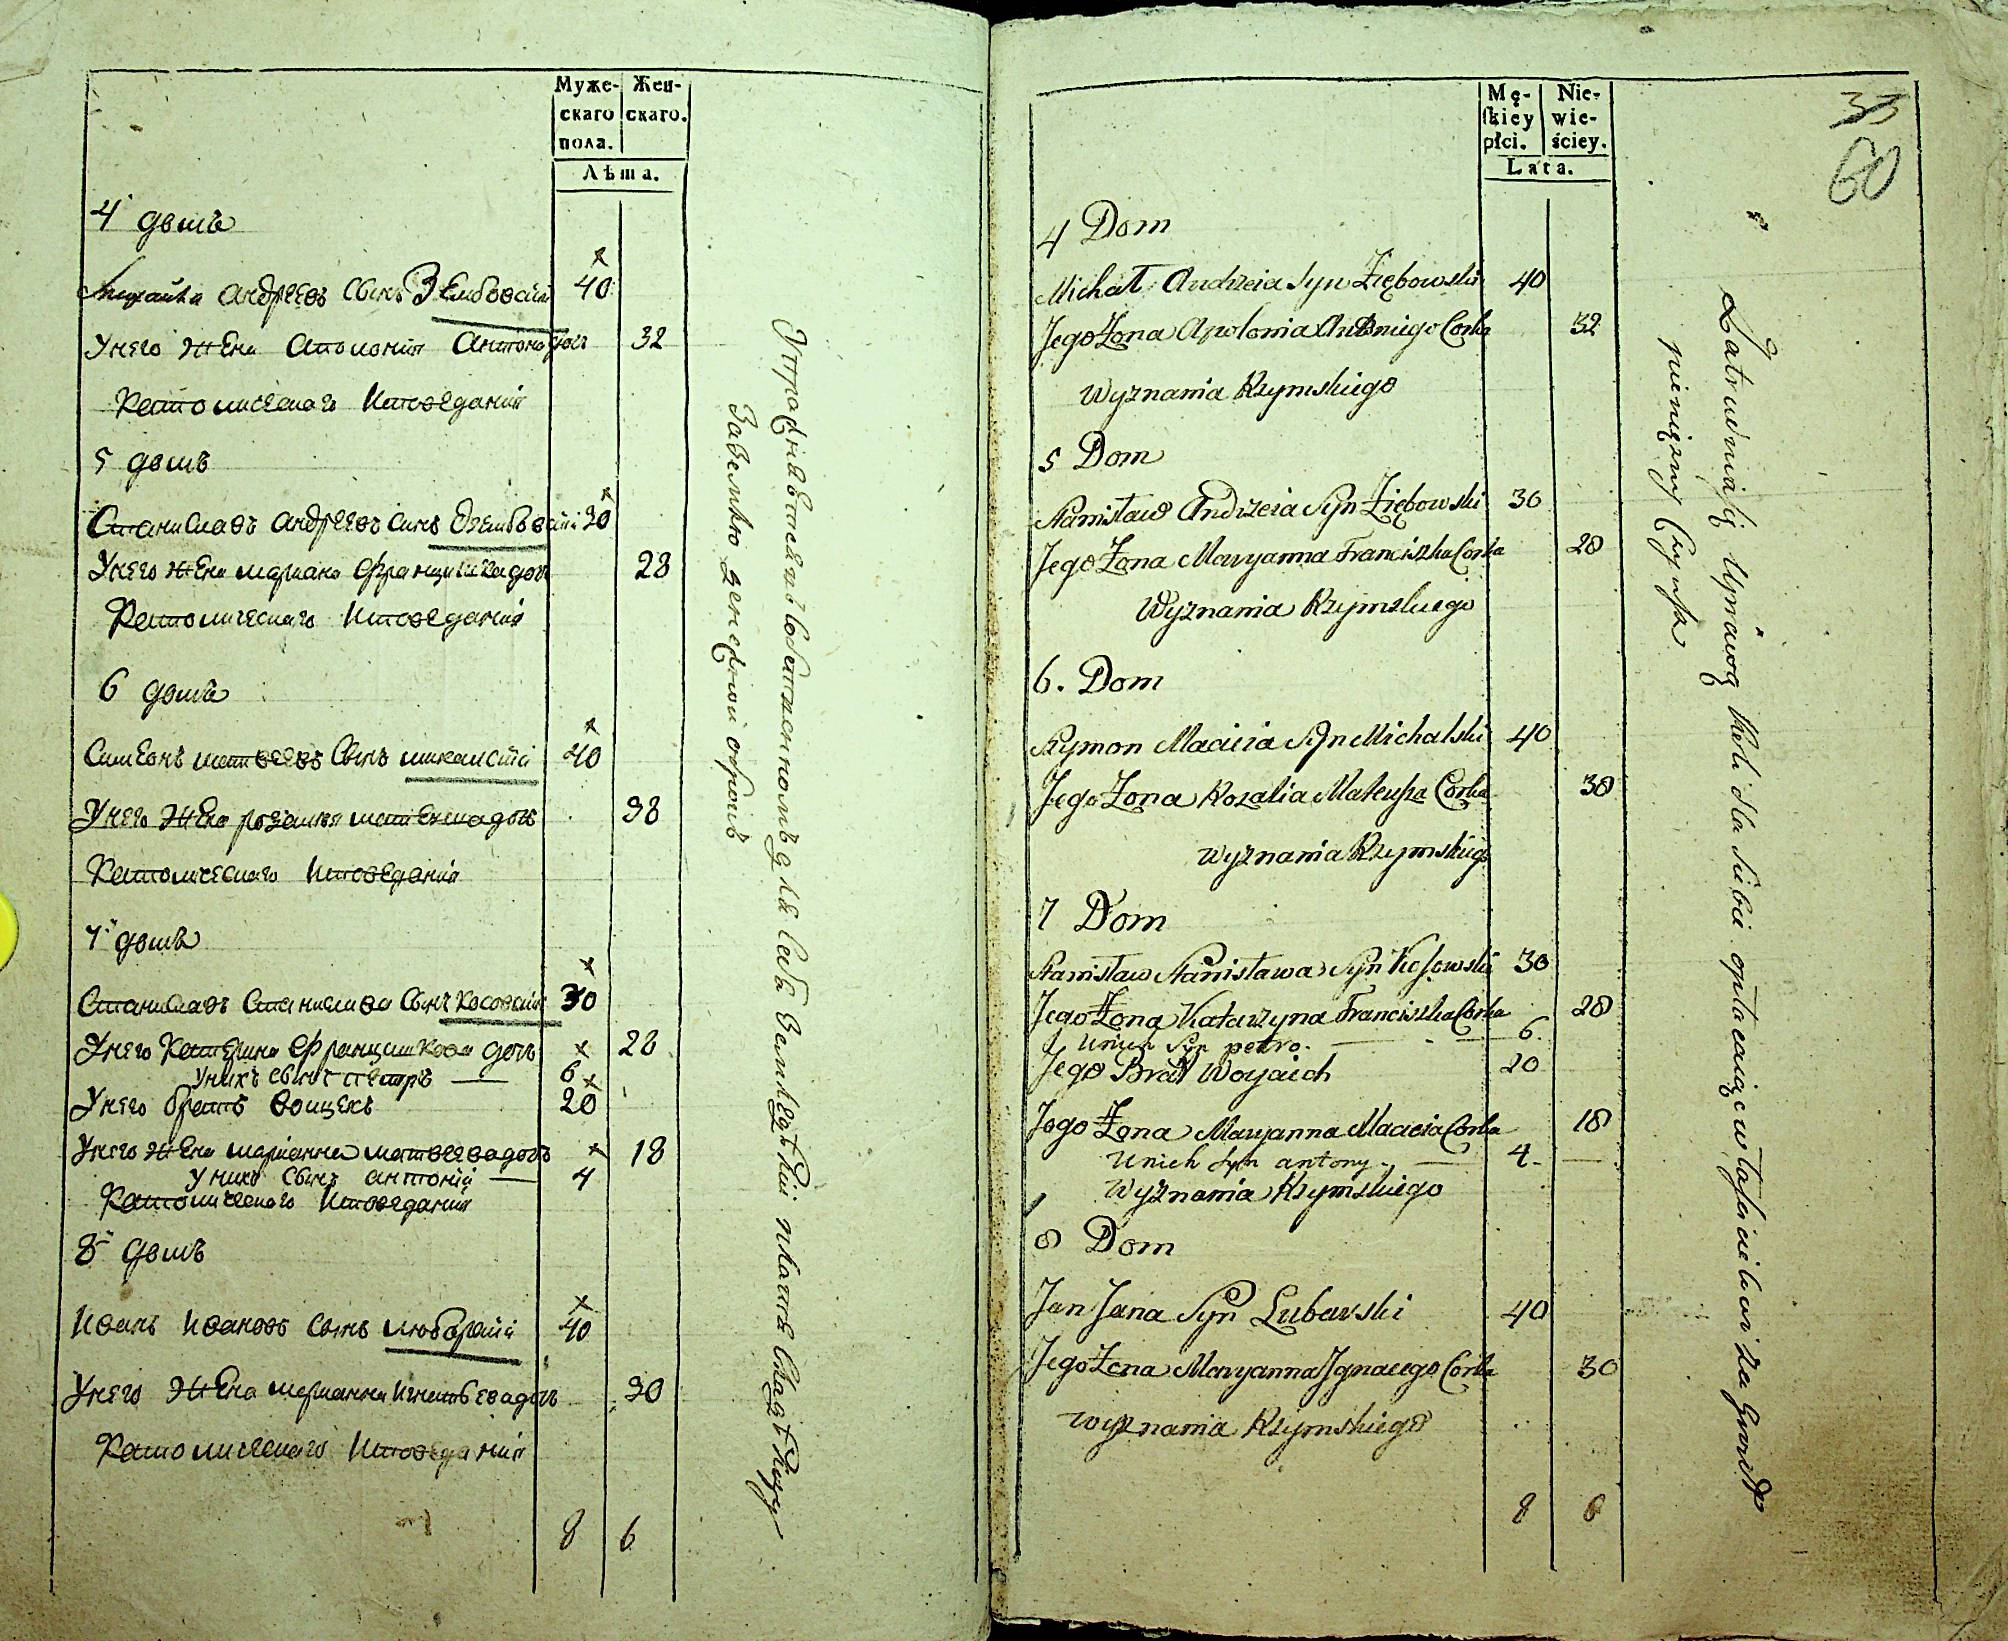 Муже-
скаго
пола.
Жен-
скаго.
Лѣта.
4 домъ
Михайла Андреевъ сынъ Зембовскій 40
У него жена Аполонія Антона дочь 32
Католическаго Исповеданія
5 домъ
Станиславъ Андреевъ сынъ Дзембовскій 30
У него жена Мариана Францишка дочь 28
Католическаго Исповеданія
6 домъ
Симеонъ Матвеевъ сынъ Михалскій 40
У него жена Розалія дочь 38
Католическаго Исповеданія
7 домъ
Станиславъ Станислава сынъ Косовскій 30
У него Катерина Францишкова дочь 28
У нихъ сынъ Петръ — 6
У него братъ Войцехъ 20
У него жена Маріанна Матвеева дочь 18
У нихъ сынъ Антоній — 4
Католическаго Исповеданія
8 домъ
Иванъ Ивановъ сынъ Любарскій 40
У него жена Марианна Игнатьева дочь 30
Католическаго Исповеданія
8 6
для себя платятъ
Завемлю денежной оброкъ
33
60
Mę-
skiey
płci.
Nie-
wie-
ściey.
Lata.
4 Dom
Michał Andrzeia Syn Ziębowski 40
Jego Żona Apolonia Antoniego Corka 32
Wyznania Rzymskiego
5 Dom
Stanisław Andrzeia Syn Ziębowski 30
Jego Żona Maryanna Franciszka Corka 28
Wyznania Rzymskiego
6. Dom
Szymon Macieia Syn Michalski 40
Jego Żona Rozalia Mateusza Corka 38
Wyznania Rzymskiego
7 Dom
Stanisław Stanisława Syn Kosowski 30
Jego Żona Katarzyna Franciszka Corka 28
Unich Syn petro. — 6
Jego Brat Woyciech 20
Jego Żona Maryanna Macieia Corka 18
Unich Syn antony — 4. —
Wyznania Rzymskiego
8 Dom
Jan Jana Syn Lubarski 40
Jego Żona Maryanna Ignacego Corka 30
Wyznania Rzymskiego
8 6
Zatrudniaią Uprawą Roli dla siebie opłacaiąc właścicielowi za Grunt
pieniężny Czynsz